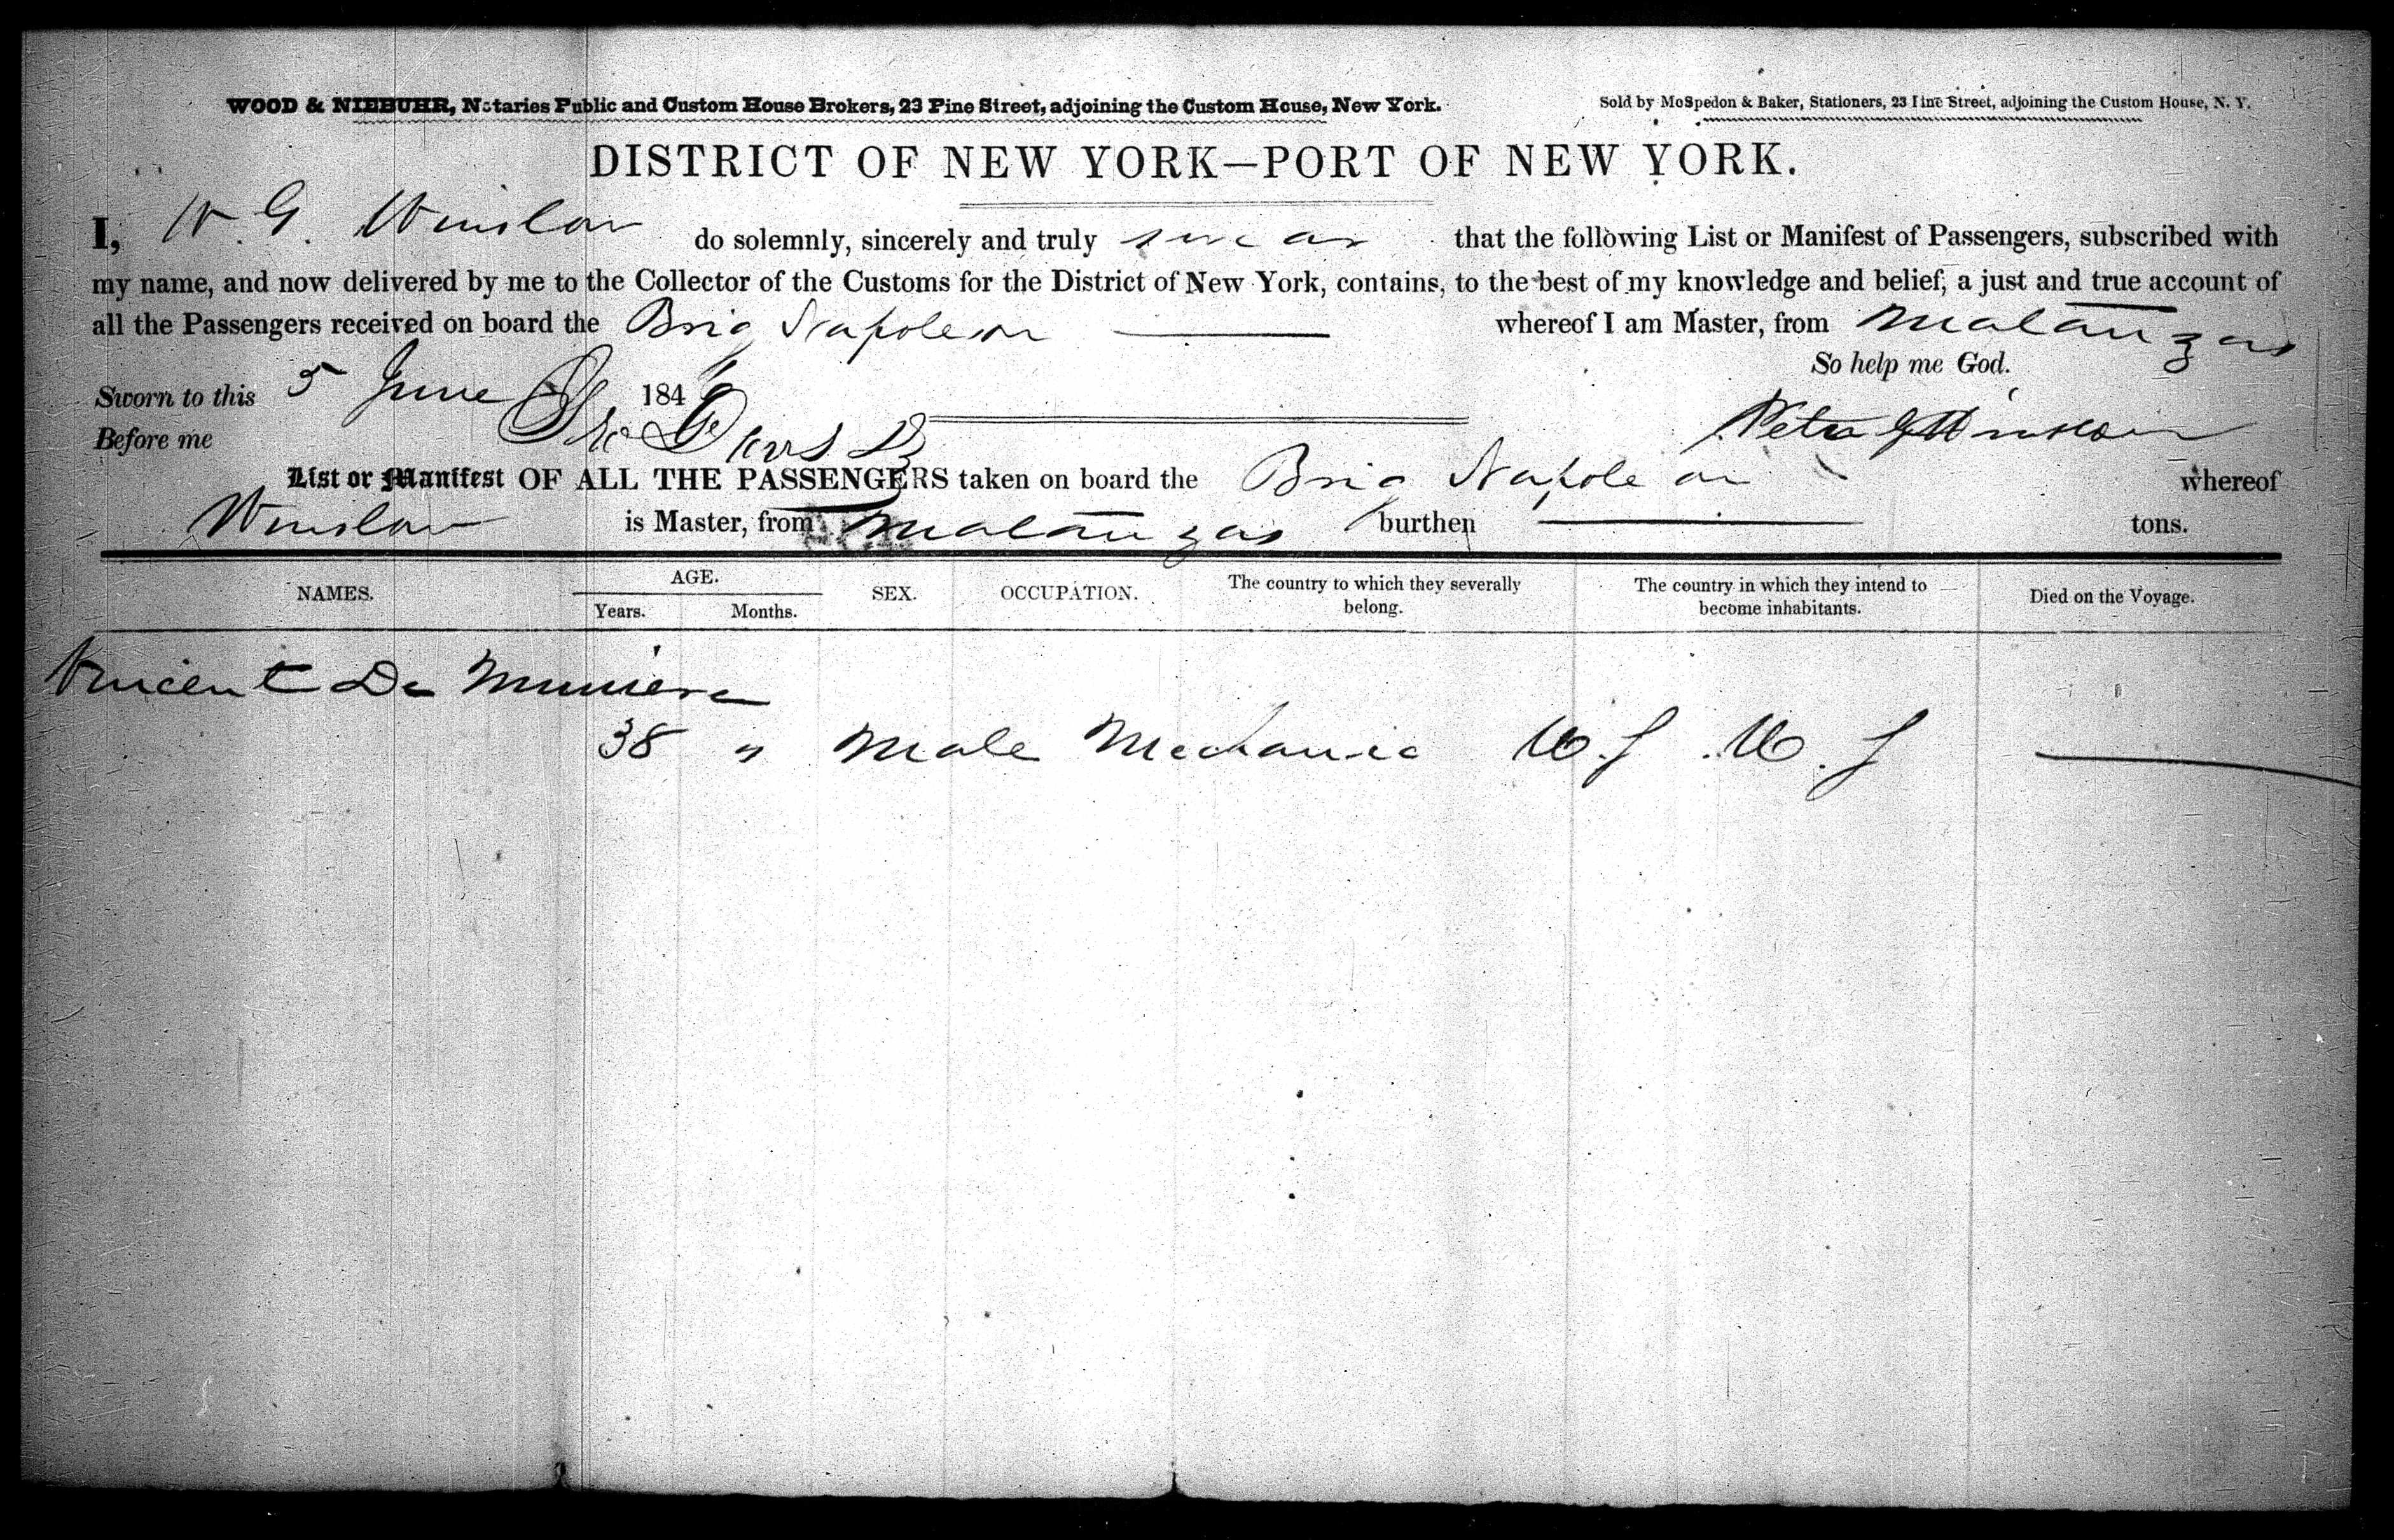 WOOD & NIEBUHR, Notaries Public and Custom House Brokers, 23 Pine Street, adjoining the Custom House, New York.
Sold by McSpedon & Baker, Stationers, 23 Pine Street, adjoining the Custom House, N. Y.
DISTRICT OF NEW YORK—PORT OF NEW YORK.
I, W. G. Winslow do solemnly, sincerely and truly swear that the following List or Manifest of Passengers, subscribed with
my name, and now delivered by me to the Collector of the Customs for the District of New York, contains, to the best of my knowledge and belief, a just and true account of
all the Passengers received on board the Brig Napoleon whereof I am Master, from Matanzas
So help me God.
Sworn to this 5 June 184
Before me
Winslow
List or Manifest OF ALL THE PASSENGERS taken on board the Brig Napoleon whereof
Winslow is Master, from Matanzas burthen tons.
NAMES. AGE. SEX. OCCUPATION. The country to which they severally belong. The country in which they intend to become inhabitants. Died on the Voyage.
Years. Months.
Vincent De
38 " Male Mechanic U.S U.S